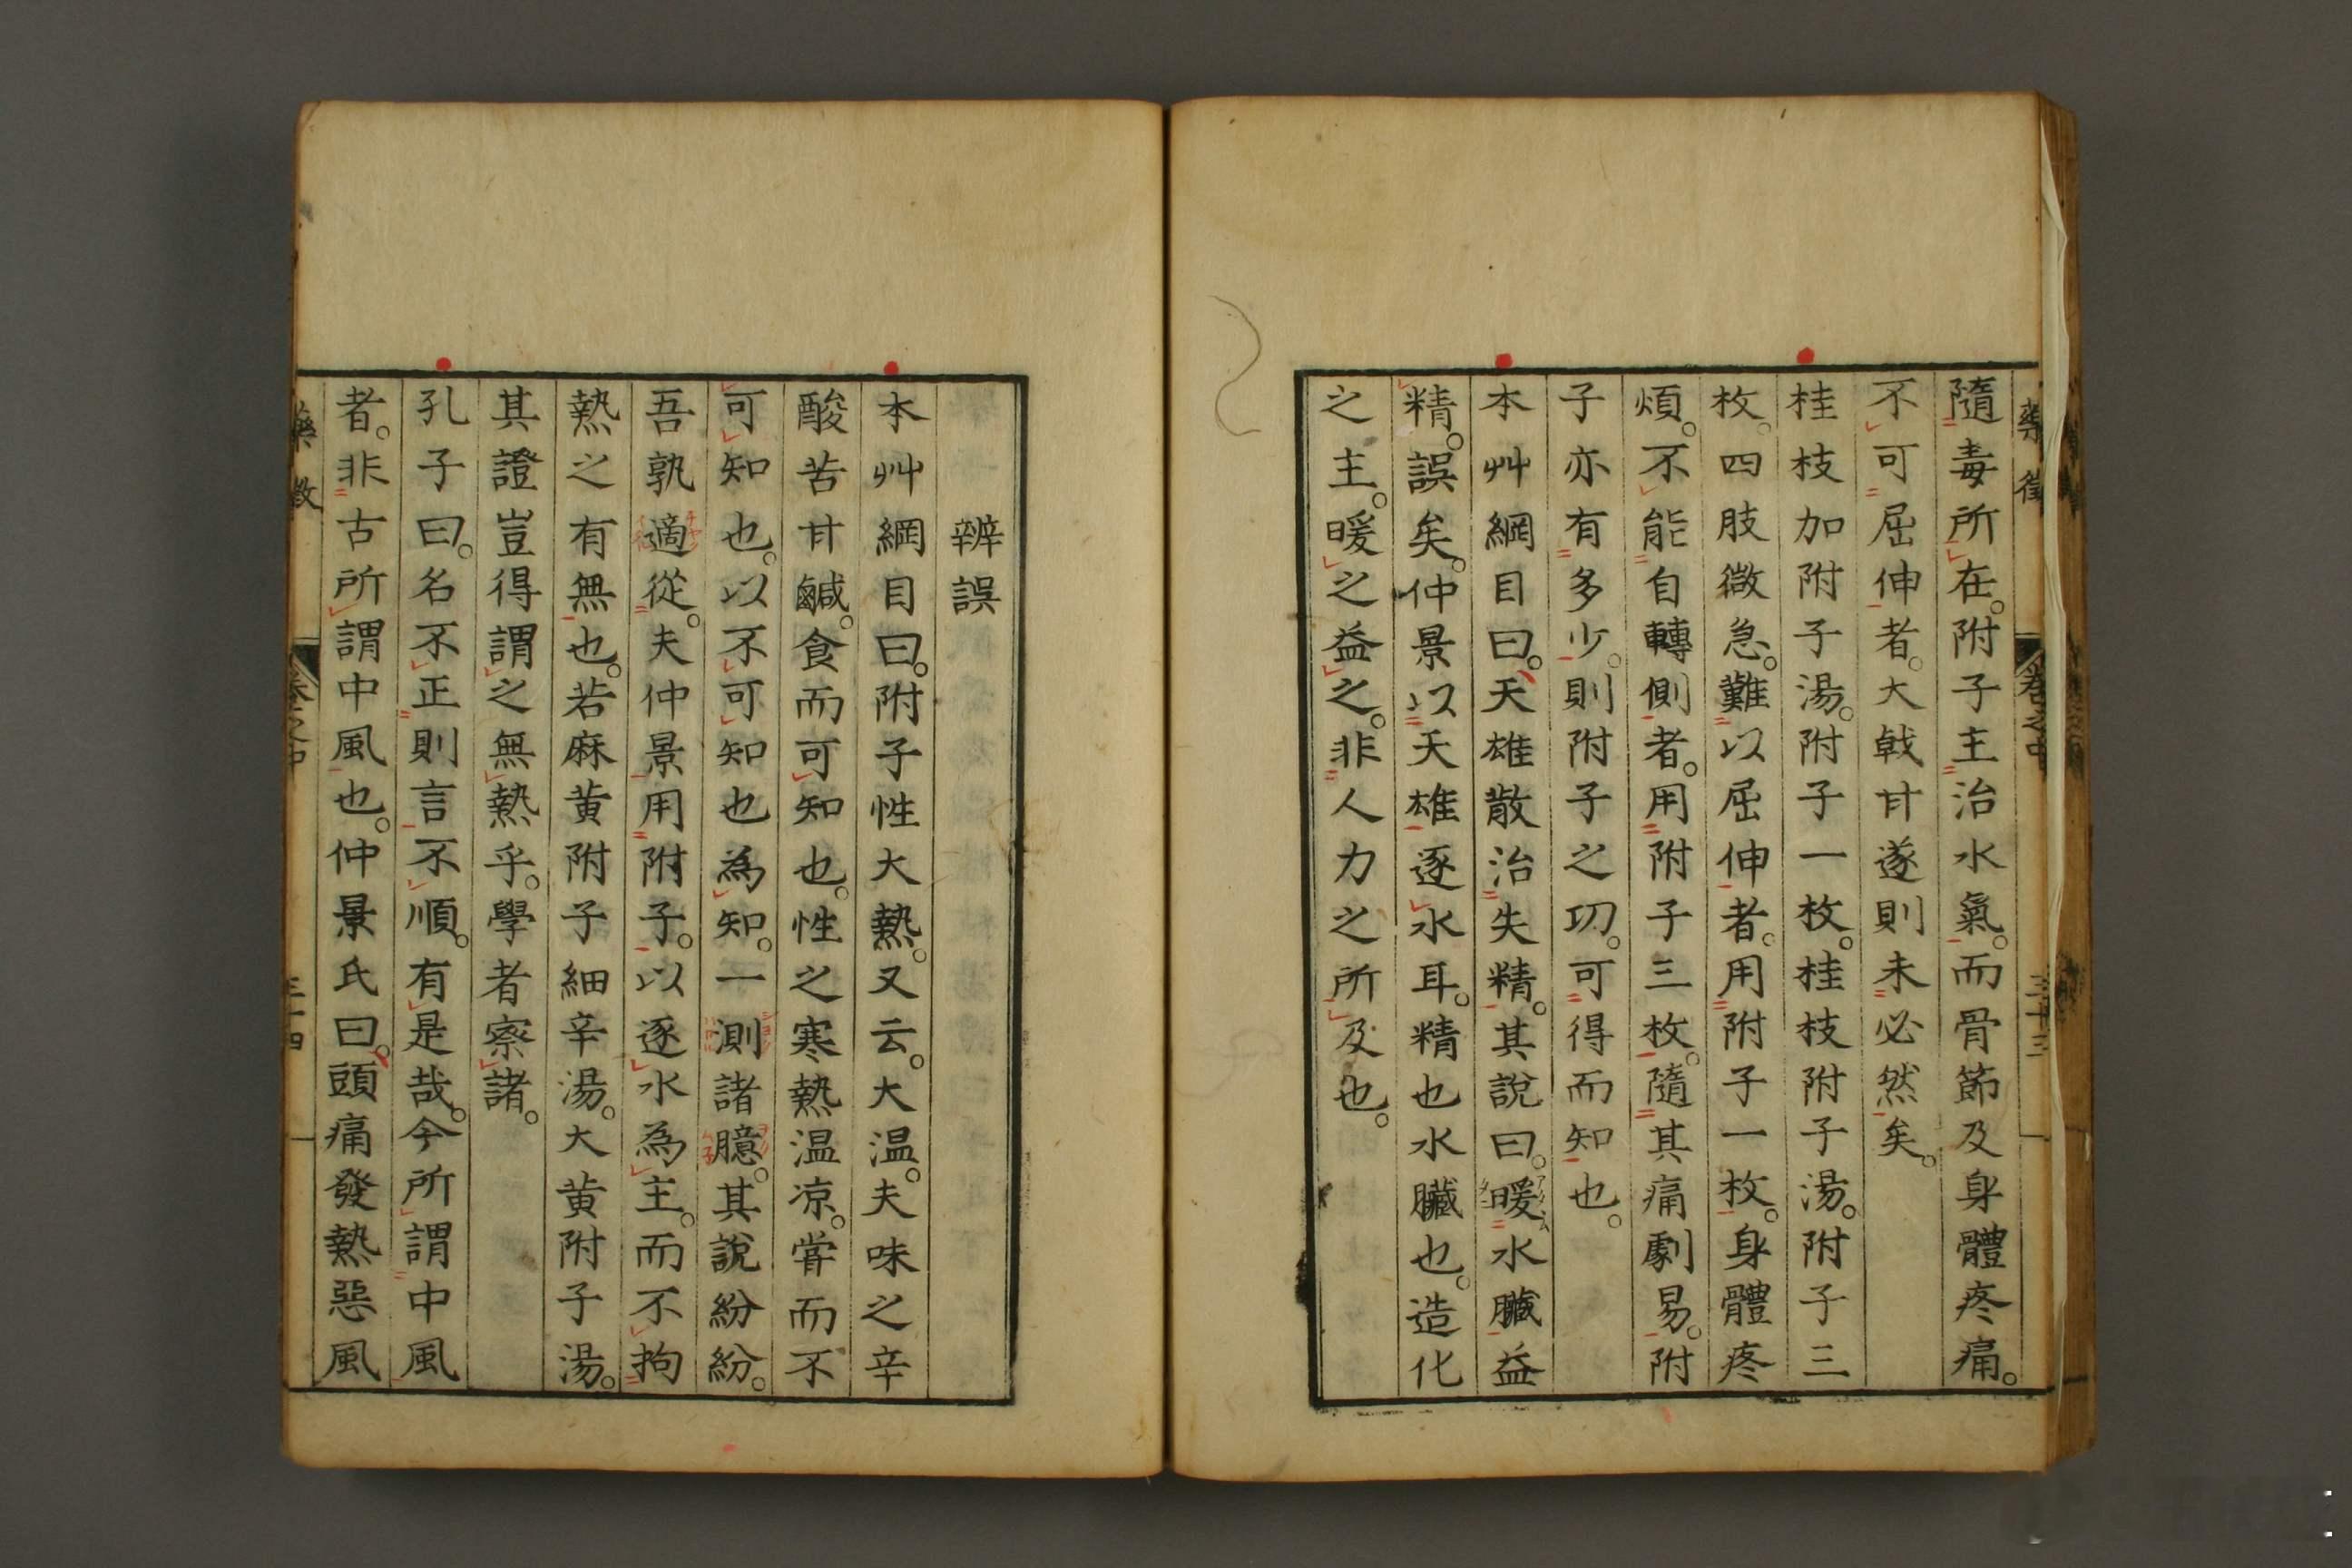 藥徵
卷之中
三十三
隨毒所在。附子主治水氣。而骨節及身體疼痛。
不可屈伸者。大戟甘遂則未必然矣。
桂枝加附子湯。附子一枚。桂枝附子湯。附子三
枚。四肢微急。難以屈伸者。用附子一枚。身體疼
煩。不能自轉側者。用附子三枚。隨其痛劇易。附
子亦有多少。則附子之功。可得而知也。
本艸綱目曰。天雄散治失精。其說曰。暖水臟益
精。誤矣。仲景以天雄逐水耳。精也水臟也。造化
之主。暖之益之。非人力之所及也。
辨誤
本艸綱目曰。附子性大熱。又云。大温。夫味之辛
酸苦甘鹹。食而可知也。性之寒熱温凉。嘗而不
可知也。以不可知也為知。一測諸臆。其說紛紛。
吾孰適從。夫仲景用附子。以逐水為主。而不拘
熱之有無也。若麻黄附子細辛湯。大黄附子湯。
其證豈得謂之無熱乎。學者察諸。
孔子曰。名不正則言不順。有是哉。今所謂中風
者。非古所謂中風也。仲景氏曰。頭痛發熱惡風
藥徵
卷之中
三十四